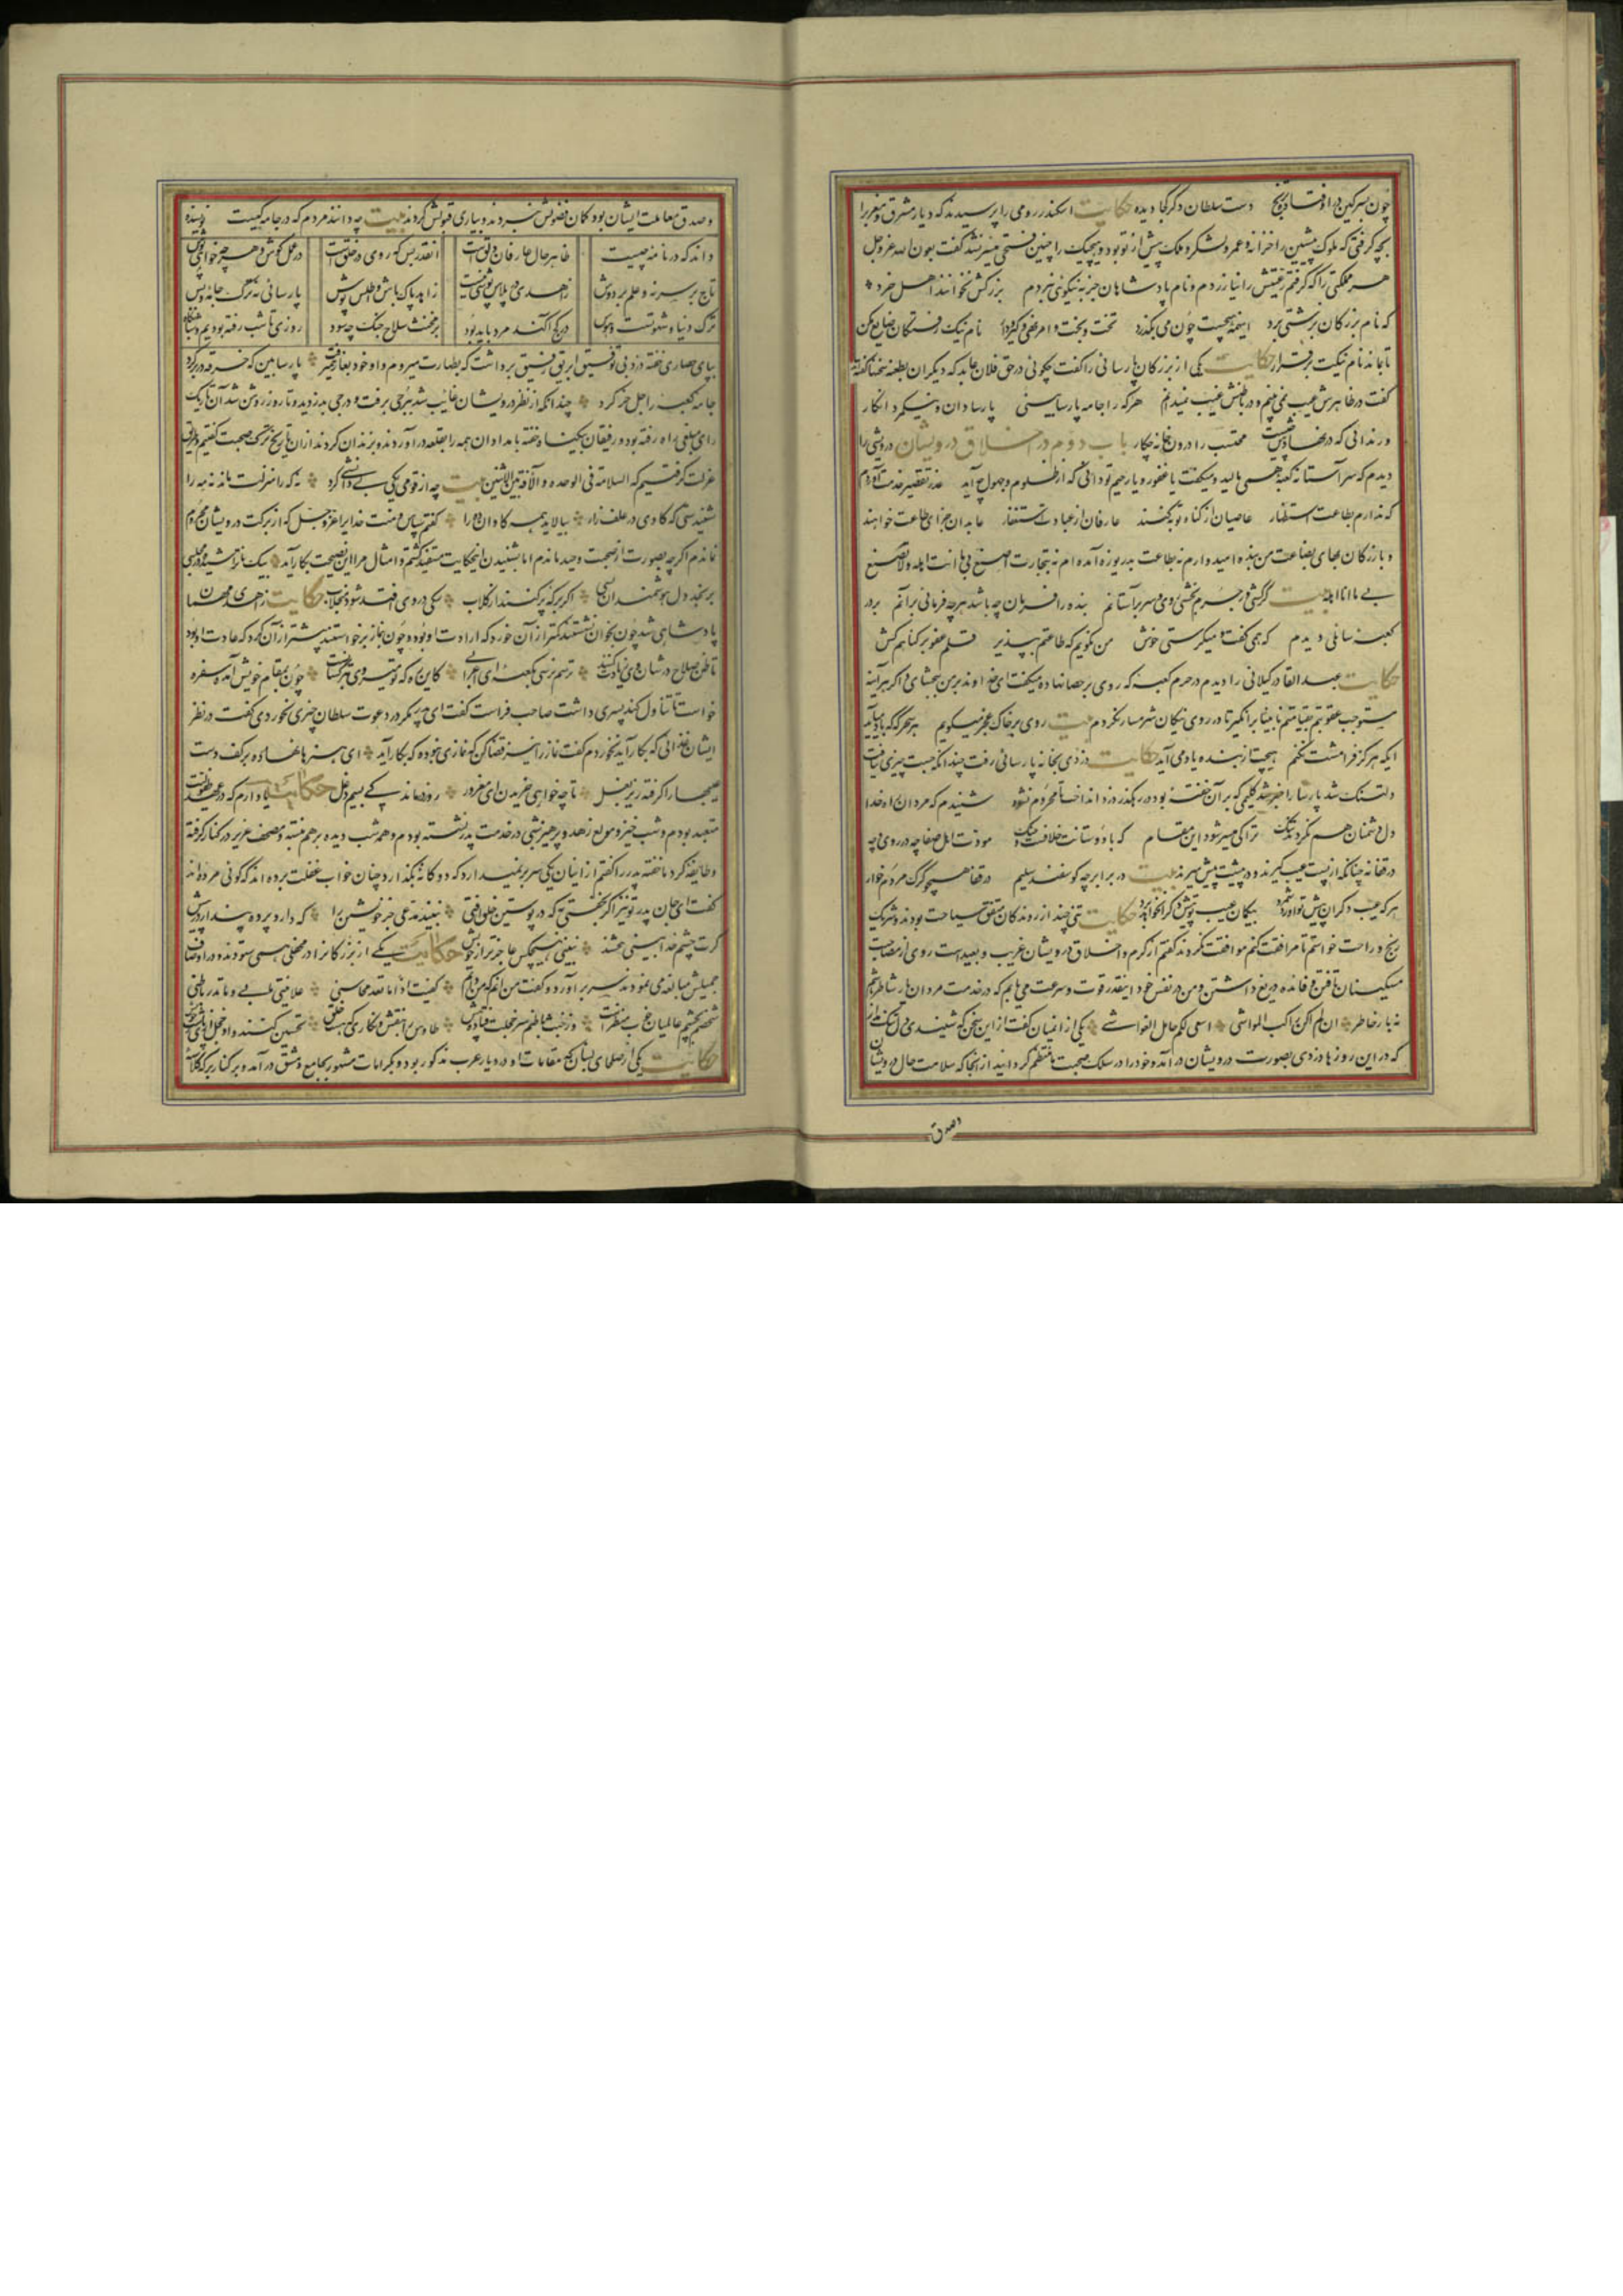 چون بسرگین در اوفتاد و بیخ دست سلطان دگر کجا دیده حکایت اسکندر رومی را پرسیدند که دیار مشرق و مغرب را
بچه گرفتی که ملوک پیشین را خزانه و عمر و لشکر و ملک پیش از تو بود و هیچیک را چنین فتحی میسر نشد گفت بعون الله عز و جل
هر مملکتی را که گرفتم رعیتش را نیازردم و نام پادشاهان جز به نیکوئی نبردم بزرگش نخوانند اهل خرد
که نام بزرگان بزشتی برد اینهمه هیچست چون می بگذرد تخت و بخت و امر و نهی و گیر و دار نام نیک رفتگان ضایع مکن
تا بماند نام نیکت برقرار حکایت یکی از بزرگان پارسائی را گفت چگوئی در حق فلان عابد که دیگران بطعنه سخنها گفته‌اند
گفت در ظاهرش عیب نمی‌بینم و در باطنش غیب نمیدانم هر که را جامه پارسا بینی پارسا دان و نیکمرد انگار
ور ندانی که در نهادش چیست محتسب را درون خانه چکار باب دوم در اخلاق درویشان درویشی را
دیدم که سر آستانه کعبه همی مالید و میگفت یا غفور و یا رحیم تو دانی که از ظلوم و جهول چه آید عذر تقصیر خدمت آوردم
که ندارم بطاعت استظهار عاصیان از گناه توبه کنند عارفان از عبادت استغفار عابدان جزای طاعت خواهند
و بازرگان بهای بضاعت من بنده امید وارم نه طاعت بدریوزه آمده‌ام نه بتجارت اصنع بی ما انت اهله و لا تصنع
بی ما انا اهله بیت گر کشی ور جرم بخشی روی و سر بر آستانم بنده را فرمان چه باشد هر چه فرمائی بر آنم بر در
کعبه سائلی دیدم که همی گفت و میگرستی خوش من نگویم که طاعتم بپذیر قلم عفو بر گناهم کش
حکایت عبدالقادر گیلانی را دیدم در حرم کعبه که روی بر حصا نهاده میگفت ای خداوند بر من ببخشای و اگر هر آینه
مستوجب عقوبتم بقیامتم نابینا برانگیز تا در روی نیکان شرمسار نگردم بیت روی بر خاک عجز میگویم هر سحرگه که باد میآید
ایکه هرگز فرامشت نکنم هیچت از بنده یاد می آید حکایت دزدی بخانه پارسائی رفت چندانکه جست چیزی نیافت
دلتنگ شد پارسا را خبر شد گلیمی که بر آن خفته بود در رهگذر دزد انداخت تا محروم نشود شنیدم که مردان راه خدا
دل دشمنان هم نکردند تنگ ترا کی میسر شود این مقام که با دوستانت خلافست و جنگ مودت اهل صفا چه در روی و چه
در قفا نه چنانکه از پست عیب گیرند و در پیشت پیش میرند بیت در برابر چو گوسفند سلیم در قفا همچو گرگ مردم خوار
هر که عیب دگران پیش تو آورد و شمرد بیگمان عیب تو پیش دگران خواهد برد حکایت تنی چند از روندگان متفق سیاحت بودند و شریک
رنج و راحت خواستم تا مرافقت کنم موافقت نکردند گفتم از کرم و اخلاق درویشان غریب و بعیدست روی از مصاحبت
مسکینان تافتن و فائده دریغ داشتن و من در نفس خود اینقدر قوت و سرعت می یابم که در خدمت مردان یار شاطر باشم
نه بار خاطر ان لم اکن راکب المواشی اسعی لکم حامل الغواشی یکی از انمیان گفت از این سخن که شنیدی دل تنگ مدار
که در این روزها دزدی بصورت درویشان در آمد و خود را در سلک صحبت ما منتظم گردانید از آنجا که سلامت حال درویشان
وصدق
و صدق معاملت ایشان بود گمان فضولش نبردند و بیاری قبولش کردند بیت چه دانند مردم که در جامه کیست نویسنده
داند که در نامه چیست ظاهر حال عارفان دلق است انقدر بس که روی در خلق است در عمل کوش و هر چه خواهی پوش
تاج بر سر نه و علم بر دوش زاهدی در پلاس پوشی نیست زاهد پاک باش و اطلس پوش پارسائی نه ترک جامه و بس
ترک دنیا و شهوتست و هوس در کژاگند مرد باید بود بر مخنث سلاح جنگ چه سود روزی تا شب رفته بودیم و شبانگاه
بپای حصاری خفته دزد بی توفیق ابریق رفیق برداشت که بطهارت میروم و او خود بغارت میرفت پارسا بین که خرقه در بر کرد
جامه کعبه را جل خر کرد چندانکه از نظر درویشان غایب شد ببرجی بر رفت و درجی بدزدید و تا روز روشن شد آن تاریک
رای مبلغی راه رفته بود و رفیقان بیگناه خفته بامدادان همه را بقلعه در آوردند و بزندان کردند از ان تاریخ ترک صحبت گفتیم و طریق
عزلت گرفتیم که السلامة فی الوحده و الآفة بین الاثنین بیت چو از قومی یکی بی دانشی کرد نه که را منزلت ماند نه مه را
شنیدستی که گاوی در علف زار بیالاید همه گاوان ده را گفتم سپاس و منت خدایرا عز و جل که از برکت درویشان محروم
نماندم اگر چه بصورت از صحبت وحید ماندم اما بشنیدن این حکایت مستفید گشتم و امثال مرا این نصیحت بکار آید بیک ناتراشیده در مجلسی
برنجد دل هوشمندان بسی اگر برکه پر کنند از گلاب سگی در وی افتد شود منجلاب حکایت زاهدی مهمان
پادشاهی شد چون بخوان بنشستند کمتر از آن خورد که ارادت او بود و چون بنماز برخواستند بیشتر از آن کرد که عادت او بود
تا ظن صلاح در شان وی زیادت کنند ترسم نرسی بکعبه ای اعرابی کاین ره که تو میروی بترکستانست چون بمقام خویش آمد سفره
خواست تا تناول کند پسری داشت صاحب فراست گفت ای پدر مگر در دعوت سلطان چیزی نخوردی گفت در نظر
ایشان غذائی که بکار آید نخوردم گفت نماز را نیز قضا کن که نمازی نبوده که بکار آید ای هنرها نهاده بر کف دست
عیبها را گرفته زیر بغل تا چه خواهی خریدن ای مغرور روز درماندگی بسیم دغل حکایت یاد دارم که در عهد طفولیت
متعبد بودم و شب خیز و مولع زهد و پرهیز شبی در خدمت پدر نشسته بودم و همه شب دیده بر هم نبسته و مصحف عزیز در کنار گرفته
و طایفه گرد ما خفته پدر را گفتم از اینان یکی سر بر نمیدارد که دوگانه بگذارد چنان خواب غفلت برده‌اند که گوئی مرده‌اند
گفت ای جان پدر تو نیز اگر بخفتی به که در پوستین خلق افتی نبیند مدعی جز خویشتن را که دارد پرده پندار در پیش
گرت چشم خدا بینی ببخشند نبینی هیچکس عاجز تر از خویش حکایت یکی از بزرگانرا در محفلی همی ستودند و در اوصاف
جمیلش مبالغه می نمودند سر بر آورد و گفت من آنم که من دانم کفیت اذا یا من تعد محاسنی علانیتی هذا و لم تدر باطنی
شخصم بچشم عالمیان خوب منظر است وز خبث باطنم سر خجلت فتاده پیش طاوس را بنقش و نگاری که هست خلق تحسین کنند و او خجل از پای زشت خویش
حکایت یکی از صلحای لبنان که مقامات او در دیار عرب مذکور بود و بکرامات مشهور بجامع دمشق در آمد و بر کنار برکه کلاسه